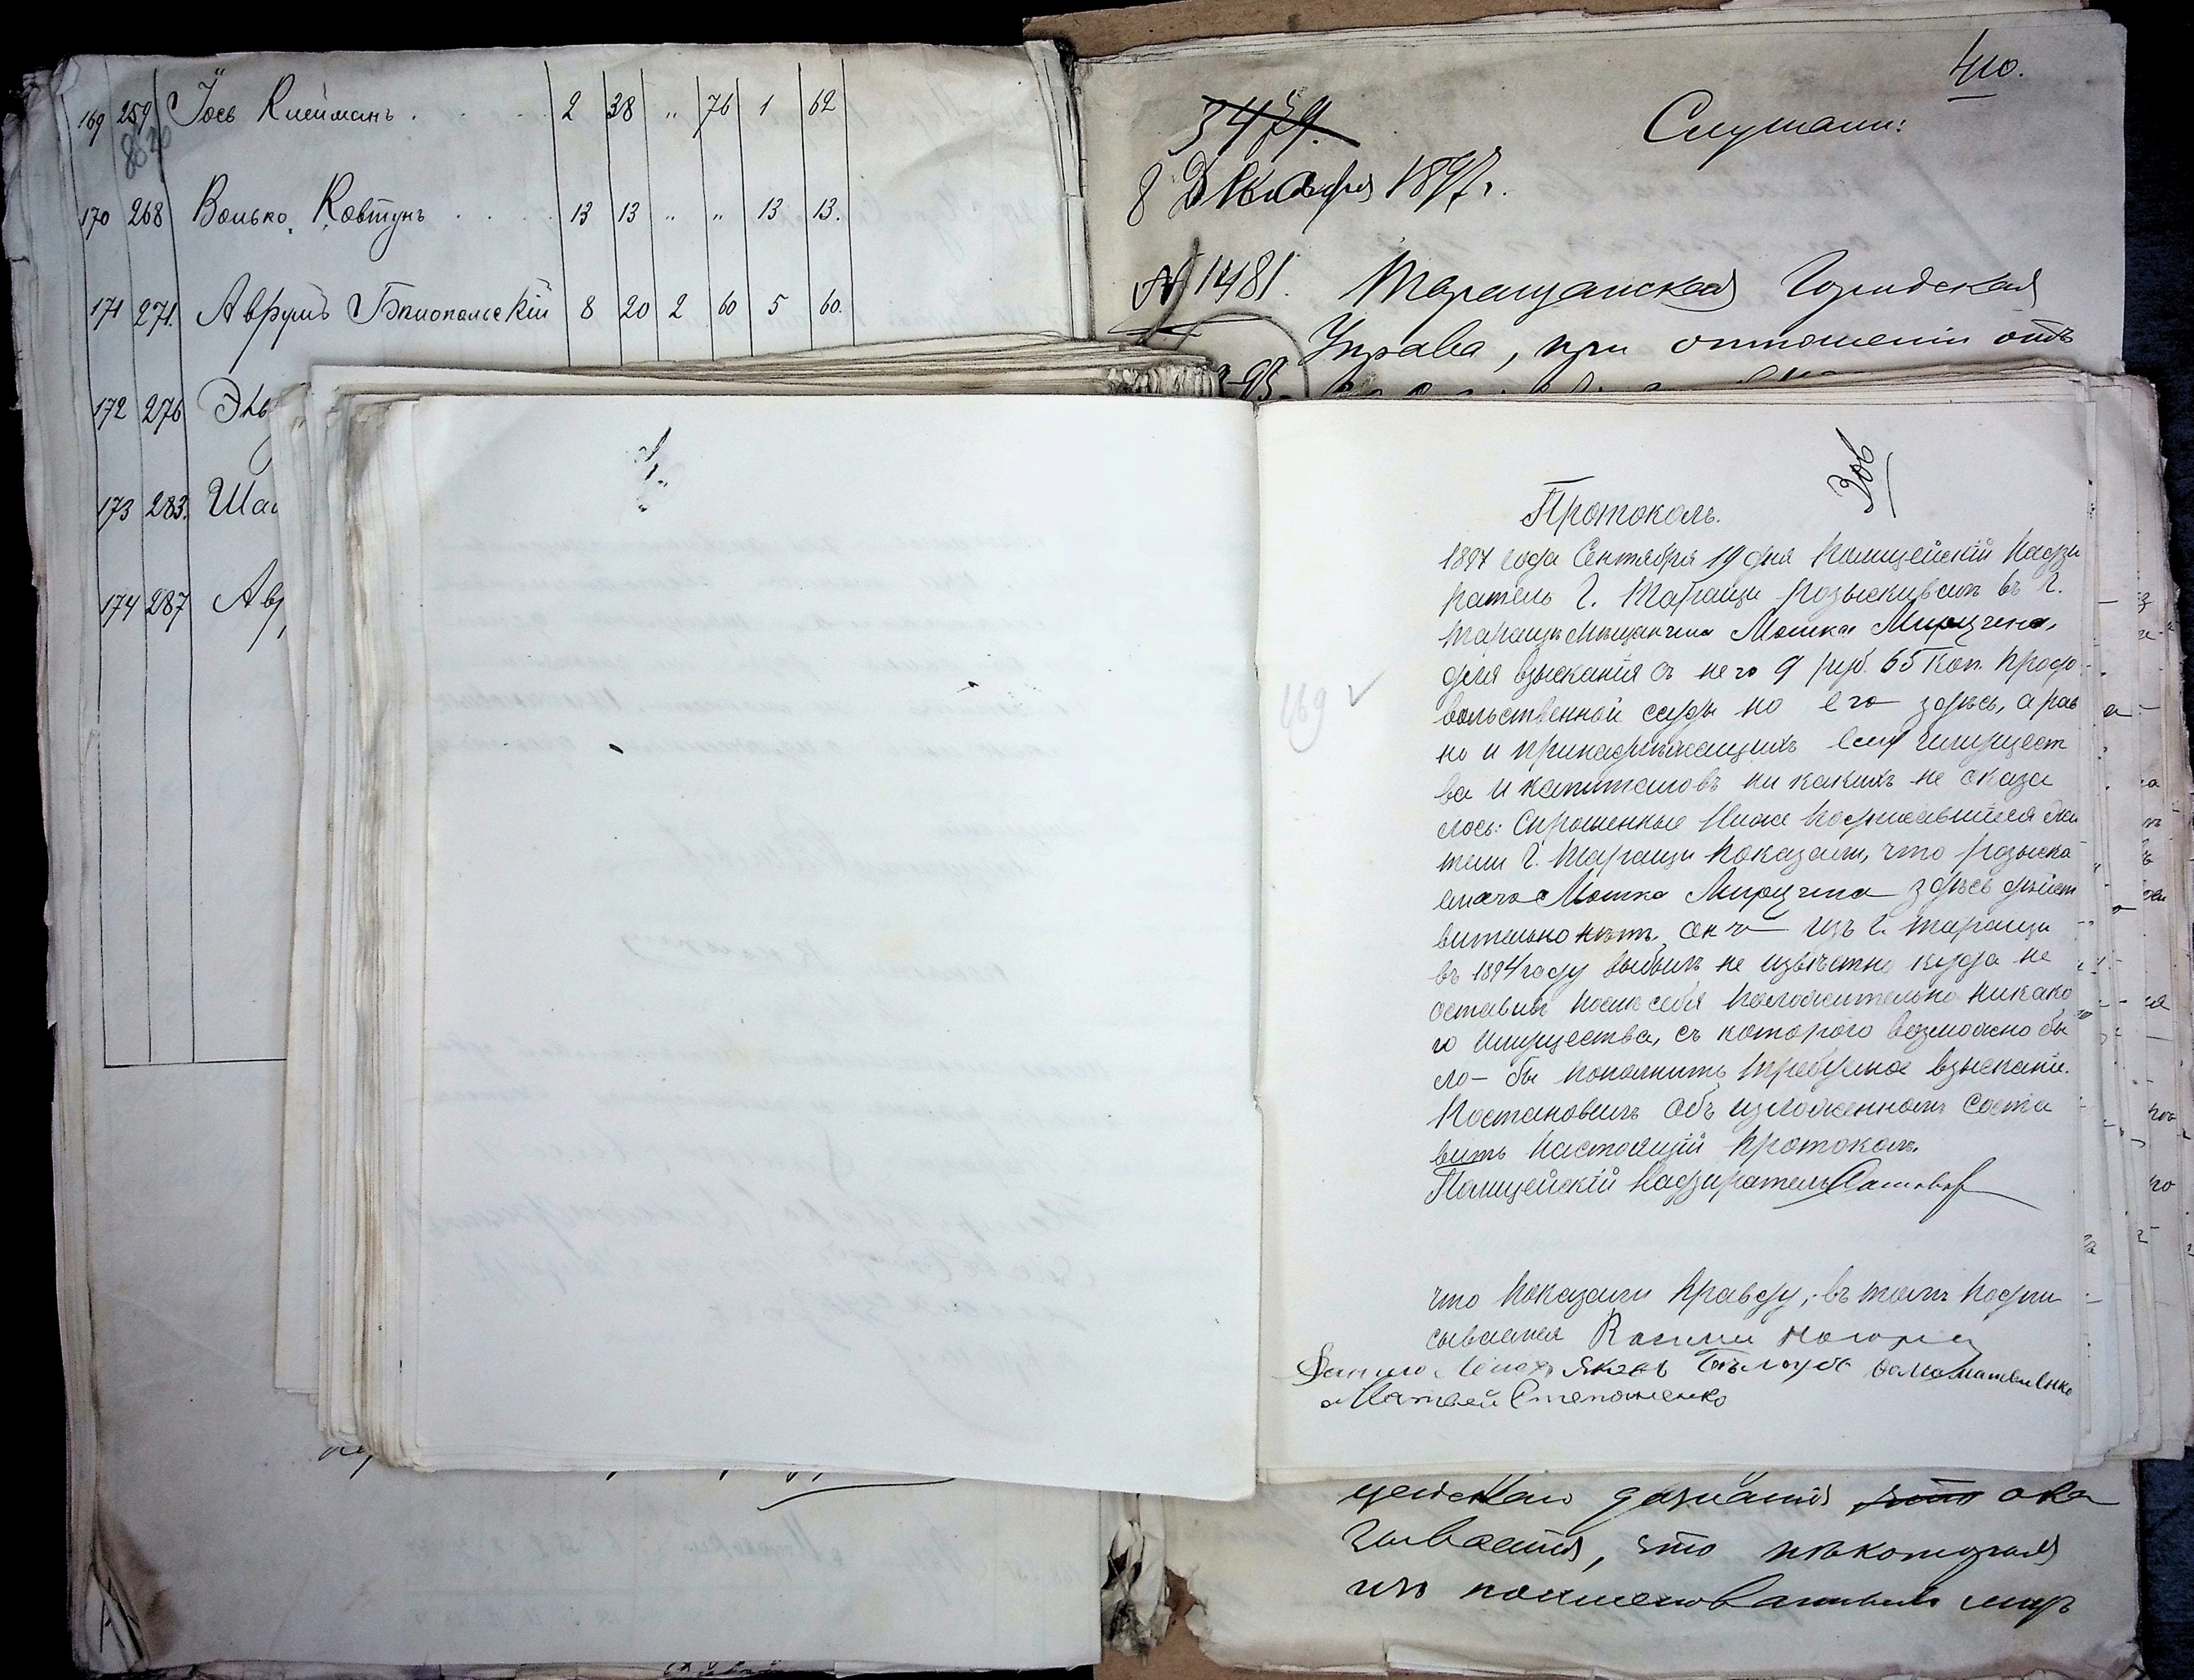 169 259 Іось Клейманъ . . . . 2 38 " 76 1 62
170 268 Волько Ковтунъ . . . . 13 13 " " 13 13.
171 271. Аврумъ Бѣлопольскій 8 20 2 60 5 60.
172 276
173 283.
174 287
410.
3479.
Слушали:
8 Декабря 1897 г.
№ 1481. Таращанская Городская
Управа, при отношеніи отъ
306
Протоколъ.
1897 года Сентября 19 дня Полицейскій Надзи
ратель Г. Таращи розыскивалъ въ Г.
Таращѣ Мѣщанина Мошка Мирцина,
для взысканія съ него 9 руб. 65 коп. продо
вольственной ссуды но его здѣсь, а рав
но и принадлежащихъ ему имущест
ва и капиталовъ ни какихъ не оказа
лось: Спрошенные Ниже Подписавшіеся жи
тели Г. Таращи показали, что розыски
емаго Мошка Мирцина здѣсь дѣйст
вительно нѣтъ, онъ изъ г. Таращи
въ 1894 году выбылъ не извѣстно куда не
оставивъ послѣ себя положительно никако
го имущества, съ котораго возможно бы
ло-бы пополнить требуемое взысканіе.
Постановилъ объ изложенномъ соста
вить настоящій протоколъ.
Полицейскій Надзиратель
169
что показали правду, въ томъ подпи
сываемся
Яковъ
Матвей Степаненко
цейскаго дознанія ока
зывается, что нѣкоторыя
изъ поименованныхъ лицъ